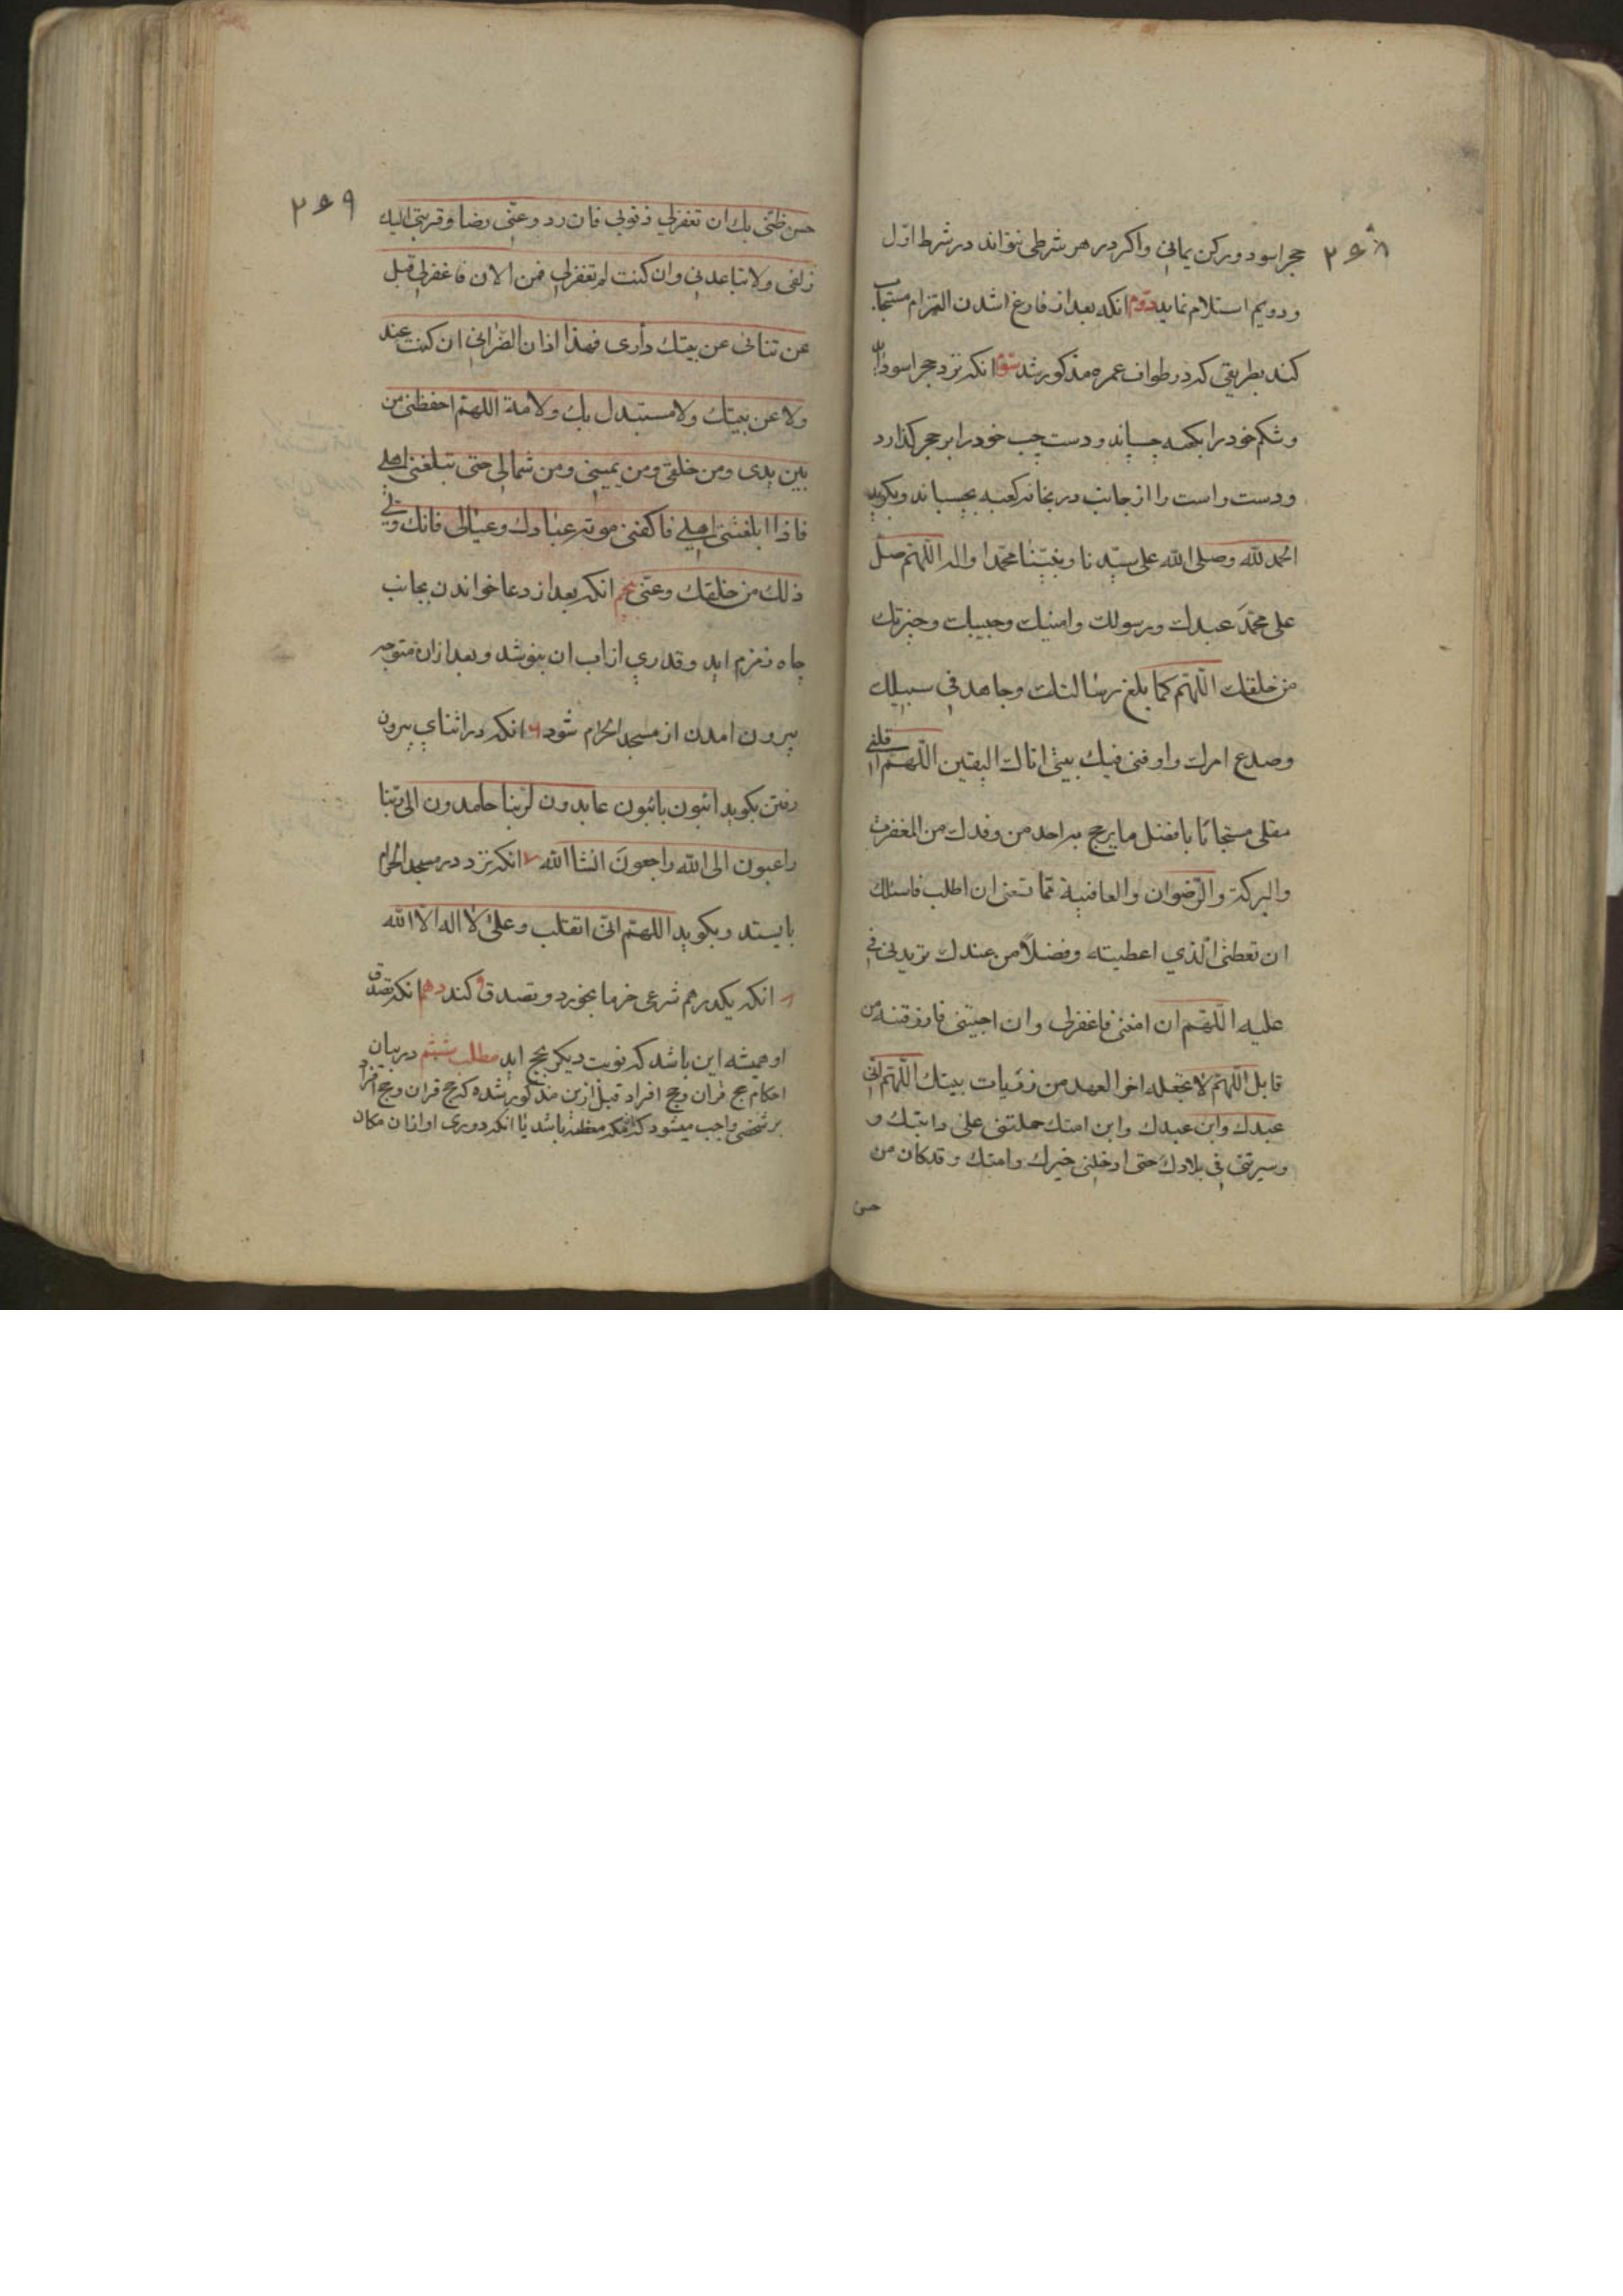 ۲۶۸
حجر اسود و ركن يماني و اكر در هر شرطى نتواند در شرط اول
و دويم استلام نمايد دوم انكه بعد از فارغ شدن التزام مستجاب
كند بطريقى كه در طواف عمره مذكور شد سوم انكه نزد حجر اسود
و شكم خود را بكعبه چساند و دست چپ خود را بر حجر كذارد
و دست راست را از جانب در بخانه كعبه بچسباند و بكويد
الحمد لله وصلى الله على سيدنا و نبينا محمدا واله اللهم صل
على محمد عبدك ورسولك وامنيك وحبيبك وخيرتك
من خلقك اللهم كما بلغ رسالتك وجاهد في سبيلك
وصدع امرك واوفنى فيك بيتى اتاك اليقين اللهم اقلبنى
مفلى مستجابا بافضل ما يرجع به احد من وفدك من المغفرت
والبركة والرضوان والعافية مما تسعنى ان اطلب فاسئلك
ان تعطنى الذي اعطيته وفضلا من عندك تزيدنى في
عليه اللهم ان امتنى فاغفرلى وان احييتنى فارزقنيه من
قابل اللهم لا تجعله اخر العهد من زيارت بيتك اللهم انى
عبدك وابن عبدك وابن امتك حملتنى على دابتك و
وسيرتنى في بلادك حتى ادخلنى خيرك وامنك وقد كان من
حسن
۲۶۹
حسن ظنى بك ان تغفرلي ذنوبي فان رد و عنى رضا وقربنى اليك
زلفى ولا تباعدنى وان كنت لم تغفرلي فمن الان فاغفرلي قبل
عن تنائى عن بيتك دارى فهذا اذان انصرافى ان كنت عند
ولا عن بيتك ولا مستبدل بك ولا مة اللهم احفظنى من
بين يدى ومن خلفى ومن يمينى ومن شمالى حتى تبلغنى اهلي
فاذا ابلغتنى اهلي فاكفنى موته عبادك وعيالى فانك ولي
ذلك من خلقك وعنى پنجم انكه بعد از دعا خواندن بجانب
چاه زمزم ايد و قدري از اب ان بنوشد و بعد ازان متوجه
بيرون امدن از مسجد الحرام شود ٦ انكه در اثناي بيرون
رفتن بكويد ائبون بائبون عابدون لربنا حامدون الى ربنا
راغبون الى الله راجعون انشا الله ٧ انكه نزد در مسجد الحرام
بايستد و بكويد اللهم انى انقلب وعلى لا اله الا الله
٨ انكه يكدرهم شرعى خرما بخورد و تصدق كند دهم انكه تصدق
او هميشه اين باشد كه نوبت ديكر بحج ايد مطلب ششم در بيان
احكام حج قران وحج افراد قبل ازين مذكور شده كه حج قران وحج افراد
بر شخصى واجب ميشود كه بمكه معظمه باشد يا انكه دوري او ازان مكان